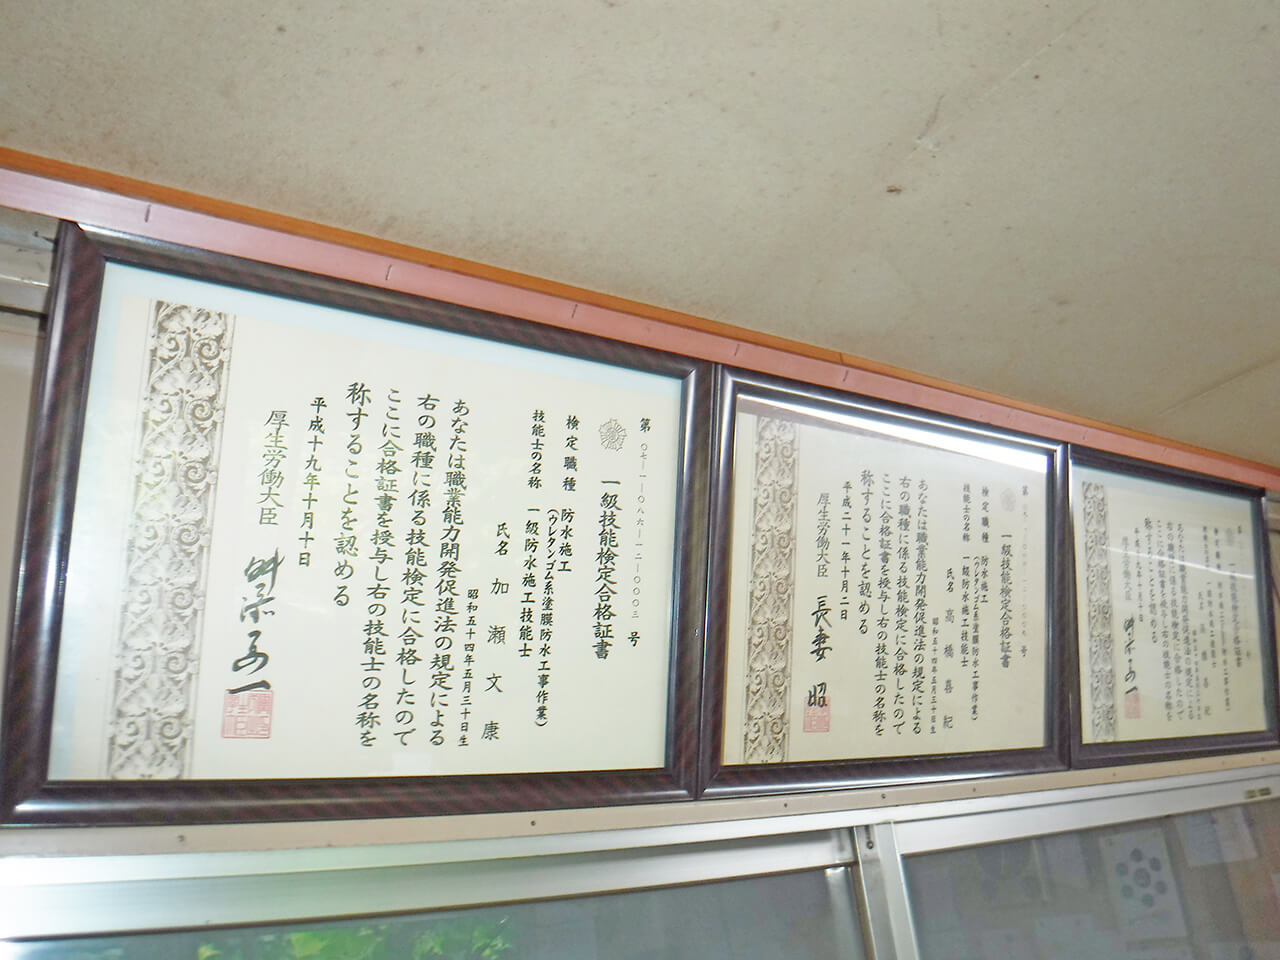 第〇七-一-一〇八六-一二-〇〇〇三号
一級技能検定合格証書
検定職種 防水施工
(ウレタンゴム系塗膜防水工事作業)
技能士の名称 一級防水施工技能士
氏名 加瀬文康
昭和五十四年五月三十日生
あなたは職業能力開発促進法の規定による
右の職種に係る技能検定に合格したので
ここに合格証書を授与し右の技能士の名称を
称することを認める
平成十九年十月十日
厚生労働大臣
第 号
一級技能検定合格証書
検定職種 防水施工
(ウレタンゴム系塗膜防水工事作業)
技能士の名称 一級防水施工技能士
氏名 高橋喜紀
昭和五十四年五月三十日生
あなたは職業能力開発促進法の規定による
右の職種に係る技能検定に合格したので
ここに合格証書を授与し右の技能士の名称を
称することを認める
平成二十一年十月二日
厚生労働大臣 長妻昭
第 号
一級技能検定合格証書
あなたは職業能力開発促進法の規定による
右の職種に係る技能検定に合格したので
ここに合格証書を授与し右の技能士の名称を
称することを認める
平成十九年十月十日
厚生労働大臣